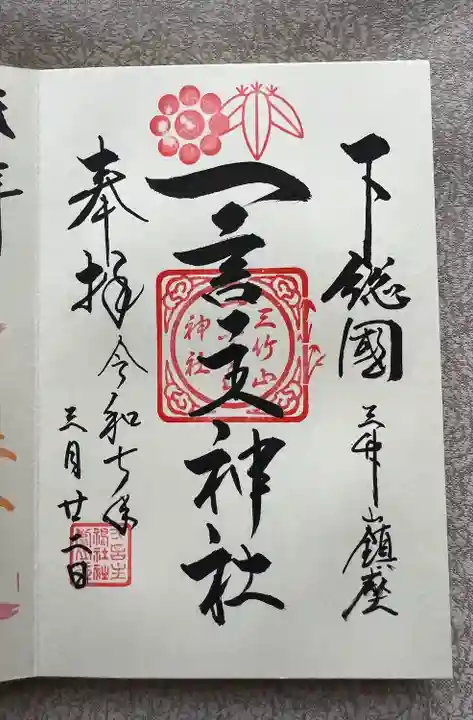 下総國
三竹山鎮座
一言主神社
三竹山
神社
奉拝
令和七年
三月廿二日